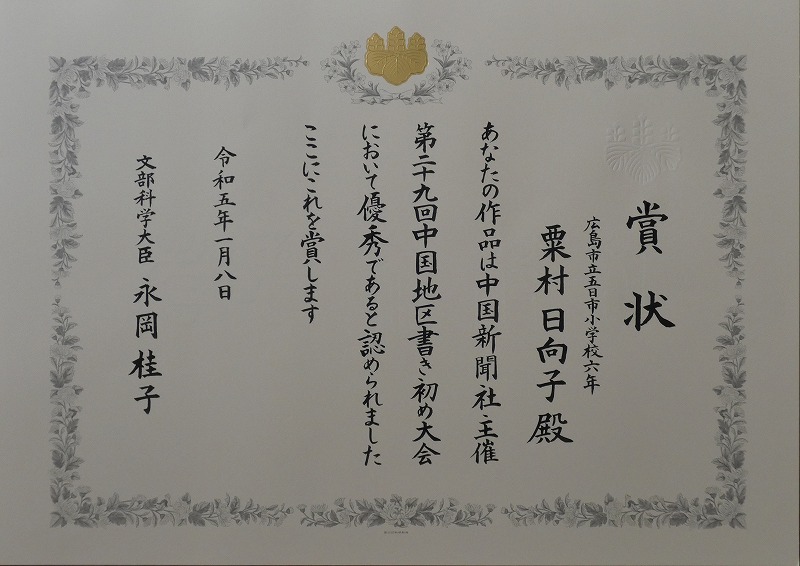 賞状
広島市立五日市小学校六年
粟村日向子殿
あなたの作品は中国新聞社主催
第二十九回中国地区書き初め大会
において優秀であると認められました
ここにこれを賞します
令和五年一月八日
文部科学大臣 永岡桂子